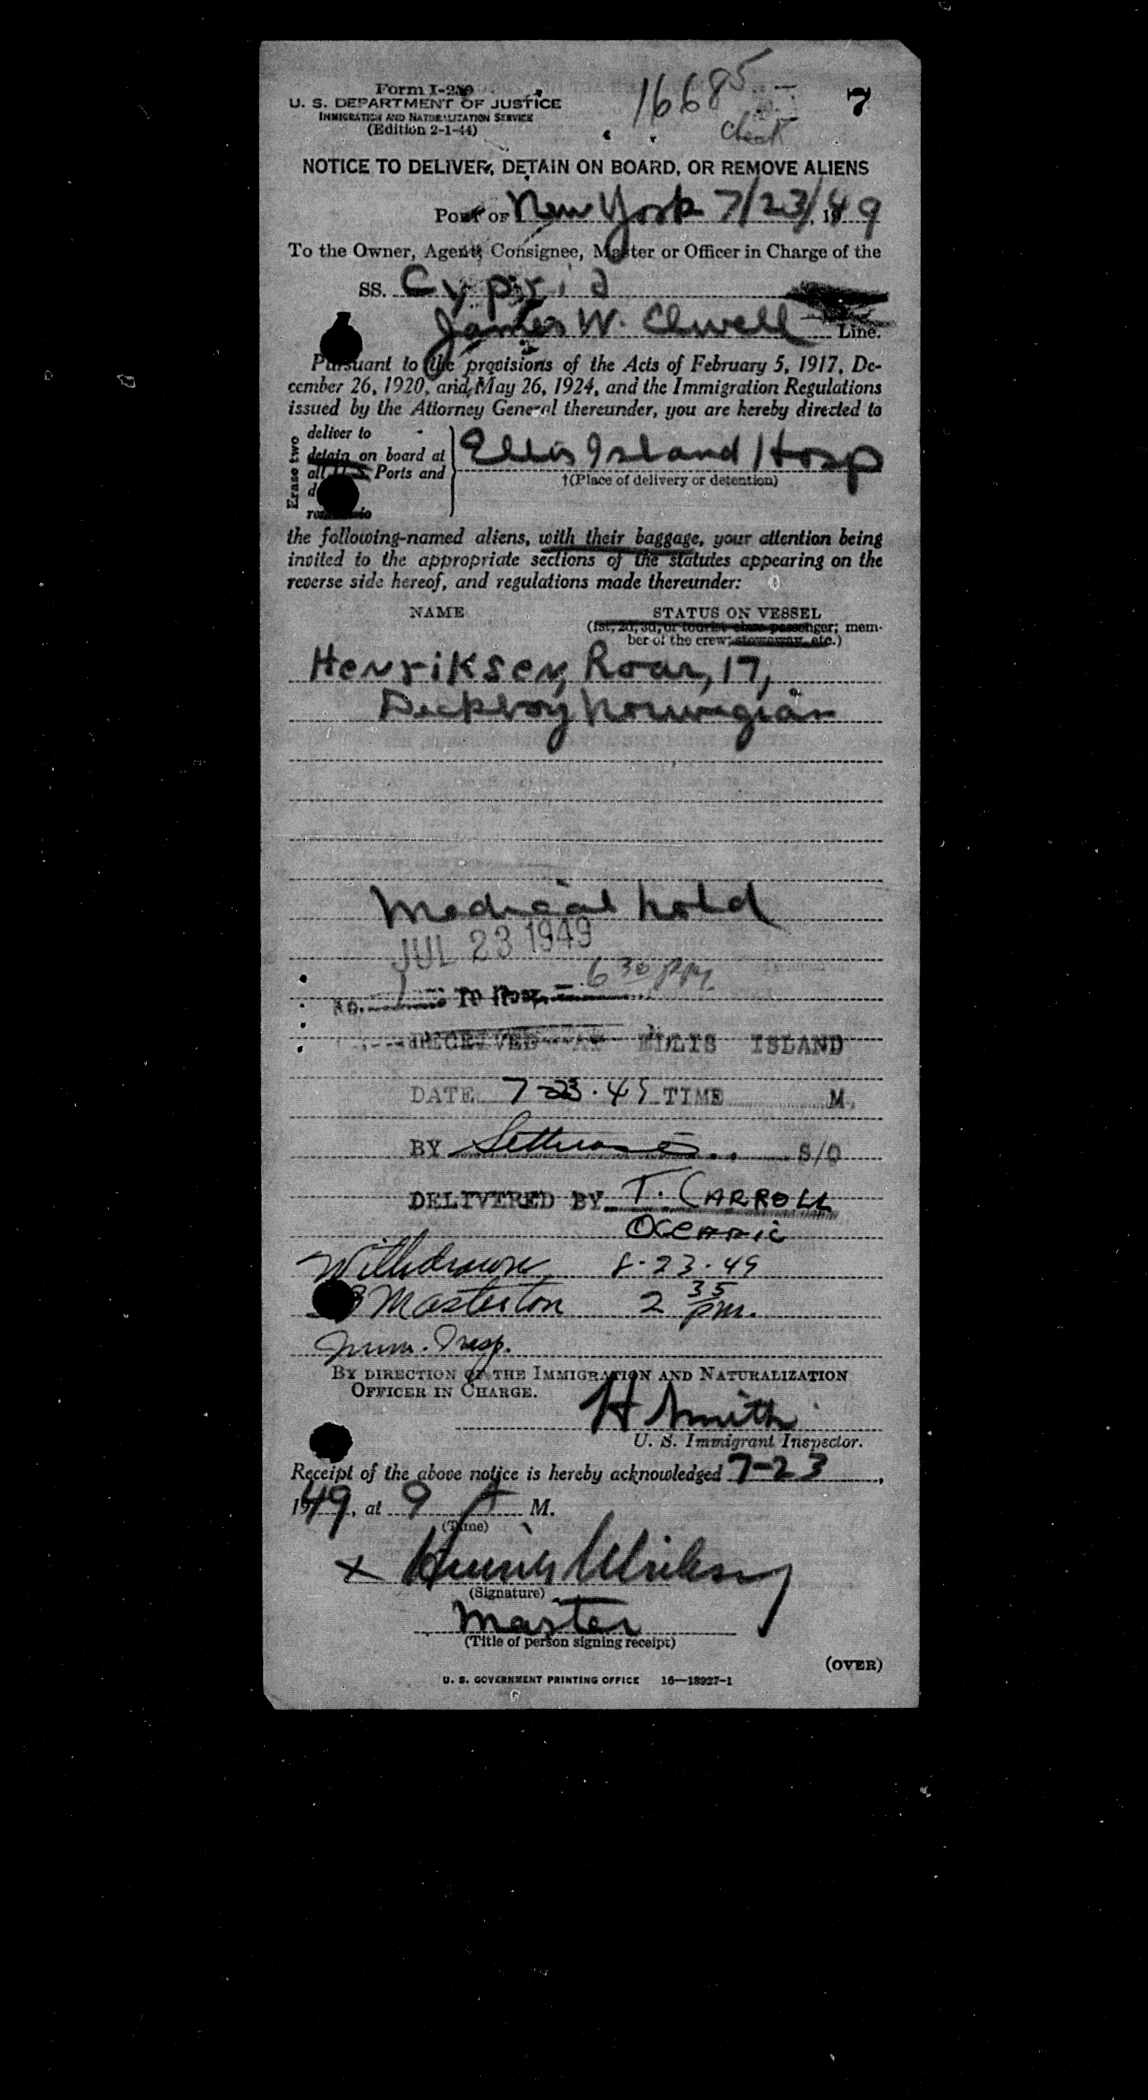 16685
7
Form I-259
U. S. DEPARTMENT OF JUSTICE
IMMIGRATION AND NATURALIZATION SERVICE
(Edition 2-1-44)
Check
NOTICE TO DELIVER, DETAIN ON BOARD, OR REMOVE ALIENS
PORT OF New York 7/23/, 1949
To the Owner, Agent, Consignee, Master or Officer in Charge of the
SS. Cypria
James W. Elwell Line.
Pursuant to the provisions of the Acts of February 5, 1917, De-
cember 26, 1920, and May 26, 1924, and the Immigration Regulations
issued by the Attorney General thereunder, you are hereby directed to
Erase two
deliver to
detain on board at
all U.S. Ports and
Ellis Island Hosp
†(Place of delivery or detention)
the following-named aliens, with their baggage, your attention being
invited to the appropriate sections of the statutes appearing on the
reverse side hereof, and regulations made thereunder:
NAME STATUS ON VESSEL
(1st, 2d, 3d, or tourist class passenger; mem-
ber of the crew; stowaway, etc.)
Henriksen, Roar, 17,
Deckboy Norwegian
Medical hold
JUL 23 1949
6 30 PM
To Hosp.
RECEIVED AT ELLIS ISLAND
DATE 7-23-49 TIME M.
BY S/O
DELIVERED BY T. CARROLL
OCEANIC
Withdrawn 8-23-49
Masterton 2 35 pm.
Imm. Insp.
BY DIRECTION OF THE IMMIGRATION AND NATURALIZATION
OFFICER IN CHARGE.
H Smith
U. S. Immigrant Inspector.
Receipt of the above notice is hereby acknowledged 7-23,
1949, at 9 A M.
(Time)
x
(Signature)
Master
(Title of person signing receipt)
(OVER)
U. S. GOVERNMENT PRINTING OFFICE 16—18927-1